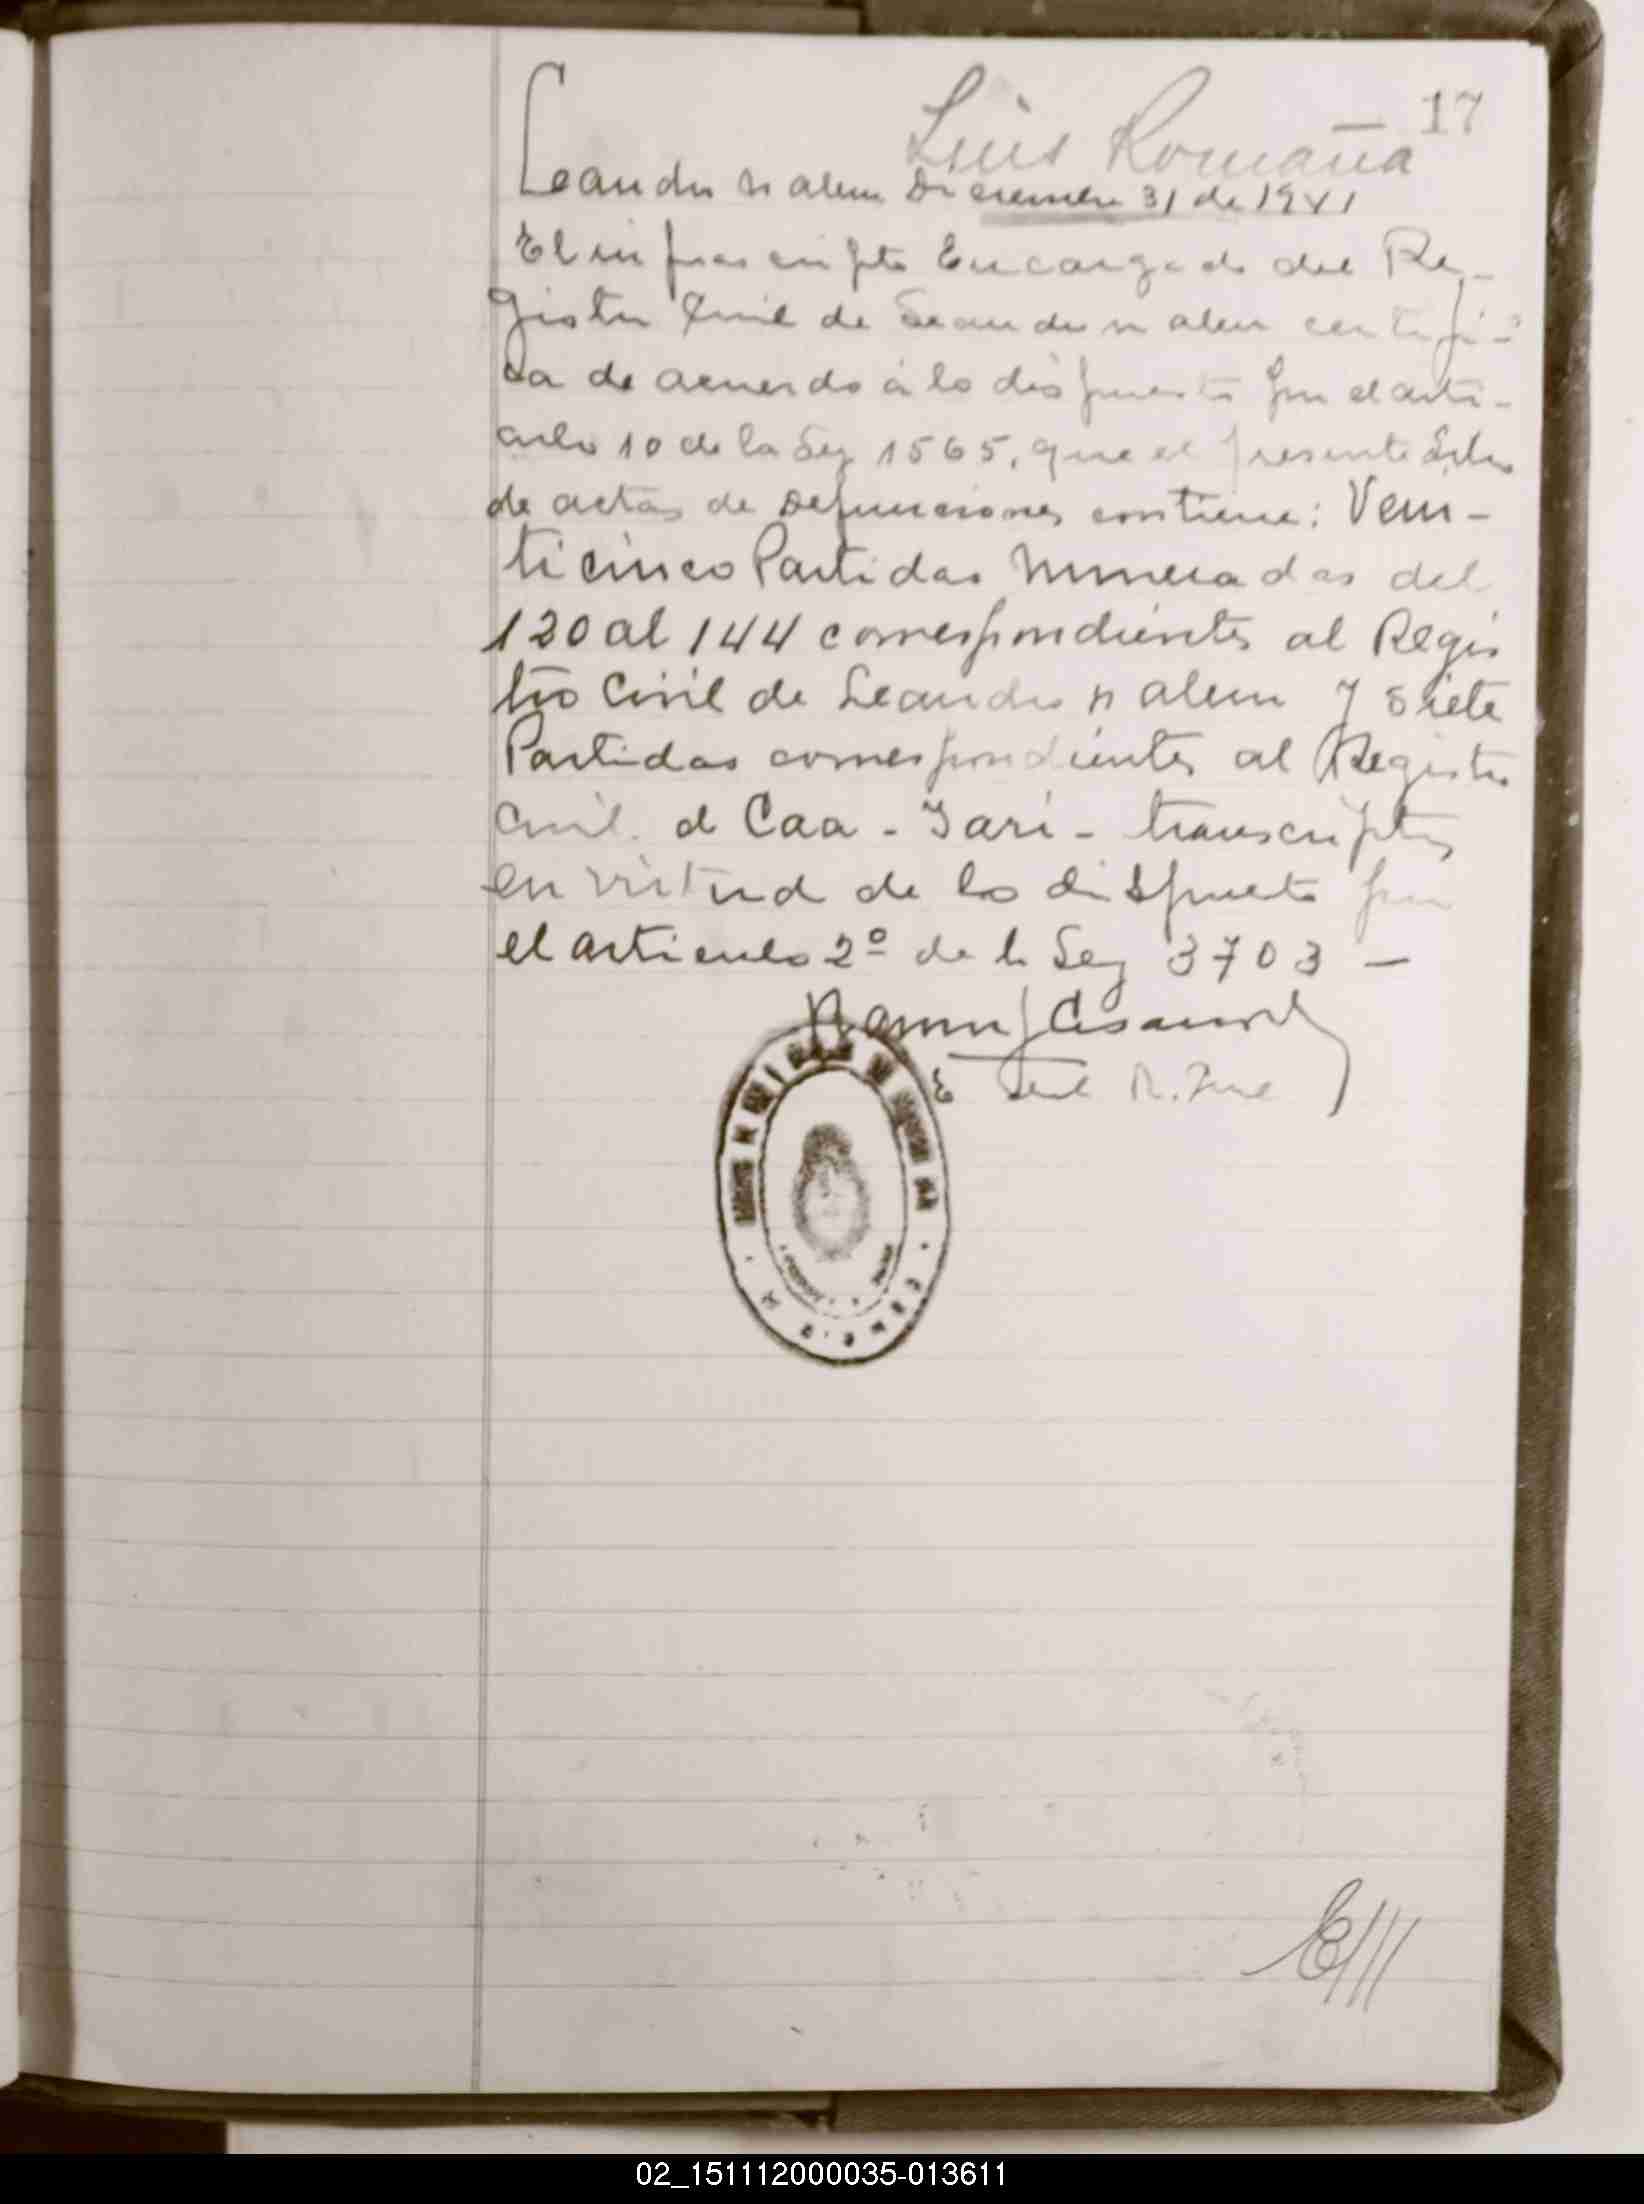 17
Luis Romaña
Leandro N Alem Diciembre 31 de 1941
El infrascripto Encargado del Re-
gistro Civil de Leandro N Alem certifi-
ca de acuerdo á lo dispuesto por el arti-
culo 10 de la Ley 1565, que el presente Libro
de actas de Defunciones contiene: Vein-
ticinco Partidas Numeradas del
120 al 144 correspondientes al Regis
tro Civil de Leandro N Alem y siete
Partidas correspondientes al Registro
Civil de Caa-Yari- transcriptas
en virtud de lo dispuesto por
el articulo 2º de la Ley 3703 —
E del R. Civil
02_151112000035-013611